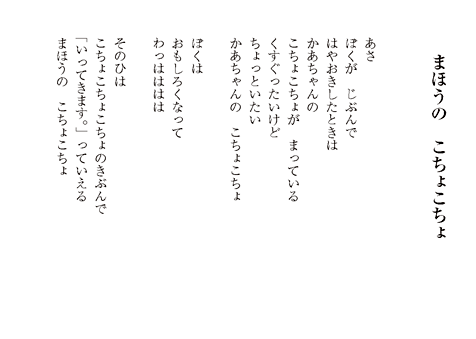 まほうの　こちょこちょ
あさ
ぼくが　じぶんで
はやおきしたときは
かあちゃんの
こちょこちょが　まっている
くすぐったいけど
ちょっといたい
かあちゃんの　こちょこちょ
ぼくは
おもしろくなって
わっはははは
そのひは
こちょこちょこちょのきぶんで
「いってきます。」っていえる
まほうの　こちょこちょ